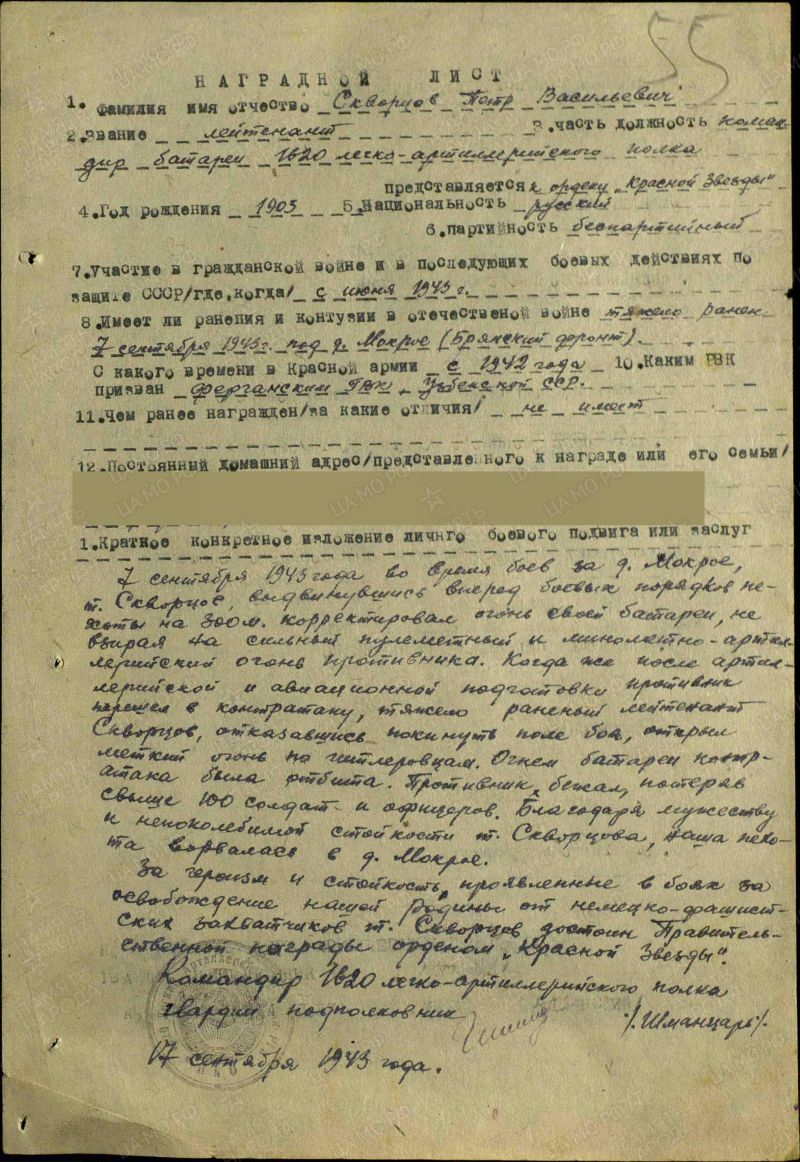 55
НАГРАДНОЙ ЛИСТ
1. Фамилия имя отчество Скворцов Петр Васильевич
2. звание лейтенант 3. часть должность коман-
дир батареи 1620 легко-артиллерийского полка
представляется к ордену „Красной Звезды"
4. Год рождения 1903 5. Национальность русский
6. партийность беспартийный
7. Участие в гражданской войне и в последующих боевых действиях по
защите СССР/где, когда/ с июня 1943 г.
8. Имеет ли ранения и контузии в отечественой войне тяжело ранен
7 сентября 1943 г. под д. Мокрое (Брянский фронт).
С какого времени в Красной армии с 1942 года 10. Каким РВК
призван Ферганским ГВК, Узбекской ССР.
11. Чем ранее награжден/за какие отличия/ не имеет
12. Постоянный домашний адрес/представленного к награде или его семьи/
1. Краткое конкретное изложение личнго боевого подвига или заслуг
7 сентября 1943 года во время боев за д. Мокрое,
т. Скворцов, выдвинувшись вперед боевых порядков пе-
хоты на 300 м. корректировал огонь своей батареи, не
взирая на сильный пулеметный и минометно-артил-
лерийский огонь противника. Когда же после артил-
лерийской и авиационной подготовки противник
перешел в контратаку, тяжело раненый лейтенант
Скворцов, отказавшись покинуть поле боя, открыл
меткий огонь по гитлеровцам. Огнем батареи контр-
атака была отбита. Противник бежал, потеряв
свыше 100 солдат и офицеров. Благодаря мужеству
и непоколебимой стойкости т. Скворцова, наша пехо-
та ворвалась в д. Мокрое.
За героизм и стойкость, проявленные в боях за
освобождение нашей Родины от немецко-фашист-
ских захватчиков т. Скворцов достоин Правитель-
ственной награды орденом „Красной Звезды".
Командир 1620 легко-артиллерийского полка
гвардии подполковник /Шманцарь/.
17 сентября 1943 года.